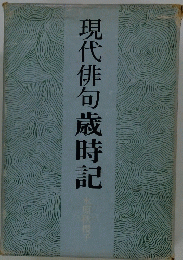 現代俳句歳時記